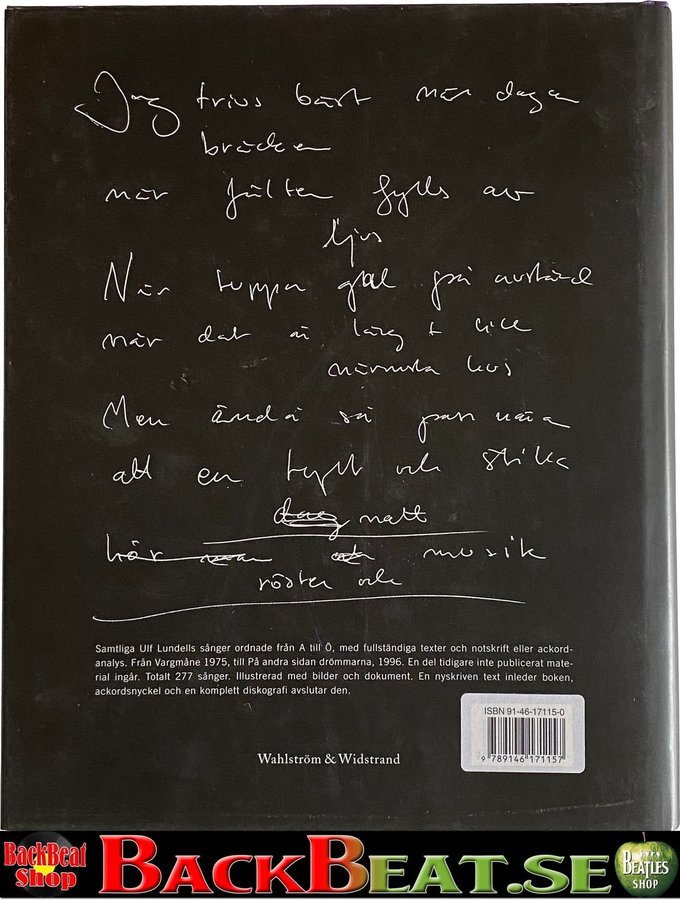 Jag trivs bäst när dagen
bräcker
när fälten fylls av
ljus
När tuppar gal på avstånd
när det är lång t
närmsta hus
Men ändå så pass nära
att en tyst och stilla
dag natt
hör man musik
röster och
Samtliga Ulf Lundells sånger ordnade från A till Ö, med fullständiga texter och notskrift eller ackord-
analys. Från Vargmåne 1975, till På andra sidan drömmarna, 1996. En del tidigare inte publicerat mate-
rial ingår. Totalt 277 sånger. Illustrerad med bilder och dokument. En nyskriven text inleder boken,
ackordsnyckel och en komplett diskografi avslutar den.
ISBN 91-46-17115-0
9 789146 171157
Wahlström & Widstrand
BackBeat
Shop
BACKBEAT.SE
BEATLES
SHOP